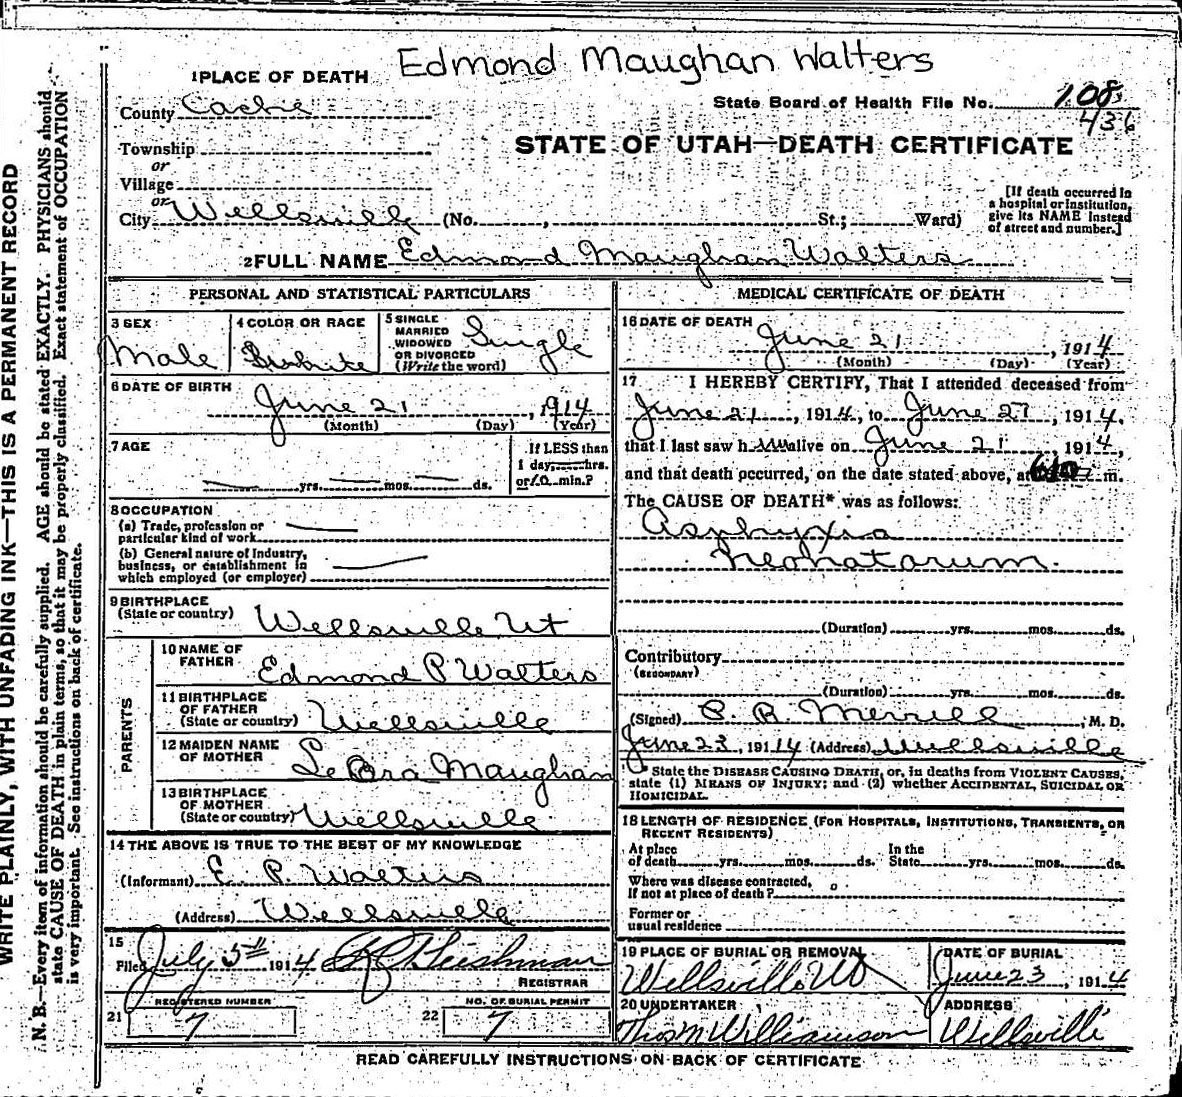 Edmond Maughan Walters
1 PLACE OF DEATH
County Cache
State Board of Health File No. 108
436
Township
or
Village
or
City Wellsville (No. , St.; Ward)
STATE OF UTAH—DEATH CERTIFICATE
[If death occurred in
a hospital or institution,
give its NAME instead
of street and number.]
2 FULL NAME Edmond Maughan Walters
PERSONAL AND STATISTICAL PARTICULARS
3 SEX
Male
4 COLOR OR RACE
White
5 SINGLE
MARRIED
WIDOWED
OR DIVORCED
(Write the word)
Single
6 DATE OF BIRTH
June 21 , 1914
(Month) (Day) (Year)
7 AGE
yrs. mos. ds.
If LESS than
1 day, hrs.
or 10 min.?
8 OCCUPATION
(a) Trade, profession or
particular kind of work
(b) General nature of Industry,
business, or establishment in
which employed (or employer)
9 BIRTHPLACE
(State or country) Wellsville Ut
PARENTS
10 NAME OF
FATHER Edmond P Walters
11 BIRTHPLACE
OF FATHER
(State or country) Wellsville
12 MAIDEN NAME
OF MOTHER LeOra Maughan
13 BIRTHPLACE
OF MOTHER
(State or country) Wellsville
14 THE ABOVE IS TRUE TO THE BEST OF MY KNOWLEDGE
(Informant) E. P. Walters
(Address) Wellsville
15
Filed July 5th 1914
REGISTRAR
REGISTERED NUMBER
21 7
NO. OF BURIAL PERMIT
22 7
MEDICAL CERTIFICATE OF DEATH
16 DATE OF DEATH
June 21 , 1914
(Month) (Day) (Year)
17 I HEREBY CERTIFY, That I attended deceased from
June 21 , 1914, to June 21 , 1914,
that I last saw h im alive on June 21 1914,
and that death occurred, on the date stated above, at m.
The CAUSE OF DEATH* was as follows:
Asphyxia
Neonatorum.
(Duration) yrs. mos. ds.
Contributory
(SECONDARY)
(Duration) yrs. mos. ds.
(Signed) C. R. Merrill , M. D.
June 23 , 1914 (Address) Wellsville
* State the DISEASE CAUSING DEATH, or, in deaths from VIOLENT CAUSES,
state (1) MEANS OF INJURY; and (2) whether ACCIDENTAL, SUICIDAL OR
HOMICIDAL.
18 LENGTH OF RESIDENCE (FOR HOSPITALS, INSTITUTIONS, TRANSIENTS, OR
RECENT RESIDENTS)
At place
of death yrs. mos. ds.
In the
State yrs. mos. ds.
Where was disease contracted,
If not at place of death?
Former or
usual residence
19 PLACE OF BURIAL OR REMOVAL
Wellsville Ut
DATE OF BURIAL
June 23 , 1914
20 UNDERTAKER
Thos M Williamson
ADDRESS
Wellsville
READ CAREFULLY INSTRUCTIONS ON BACK OF CERTIFICATE
WRITE PLAINLY, WITH UNFADING INK—THIS IS A PERMANENT RECORD
N. B.—Every item of information should be carefully supplied. AGE should be stated EXACTLY. PHYSICIANS should
state CAUSE OF DEATH in plain terms, so that it may be properly classified. Exact statement of OCCUPATION
is very important. See instructions on back of certificate.